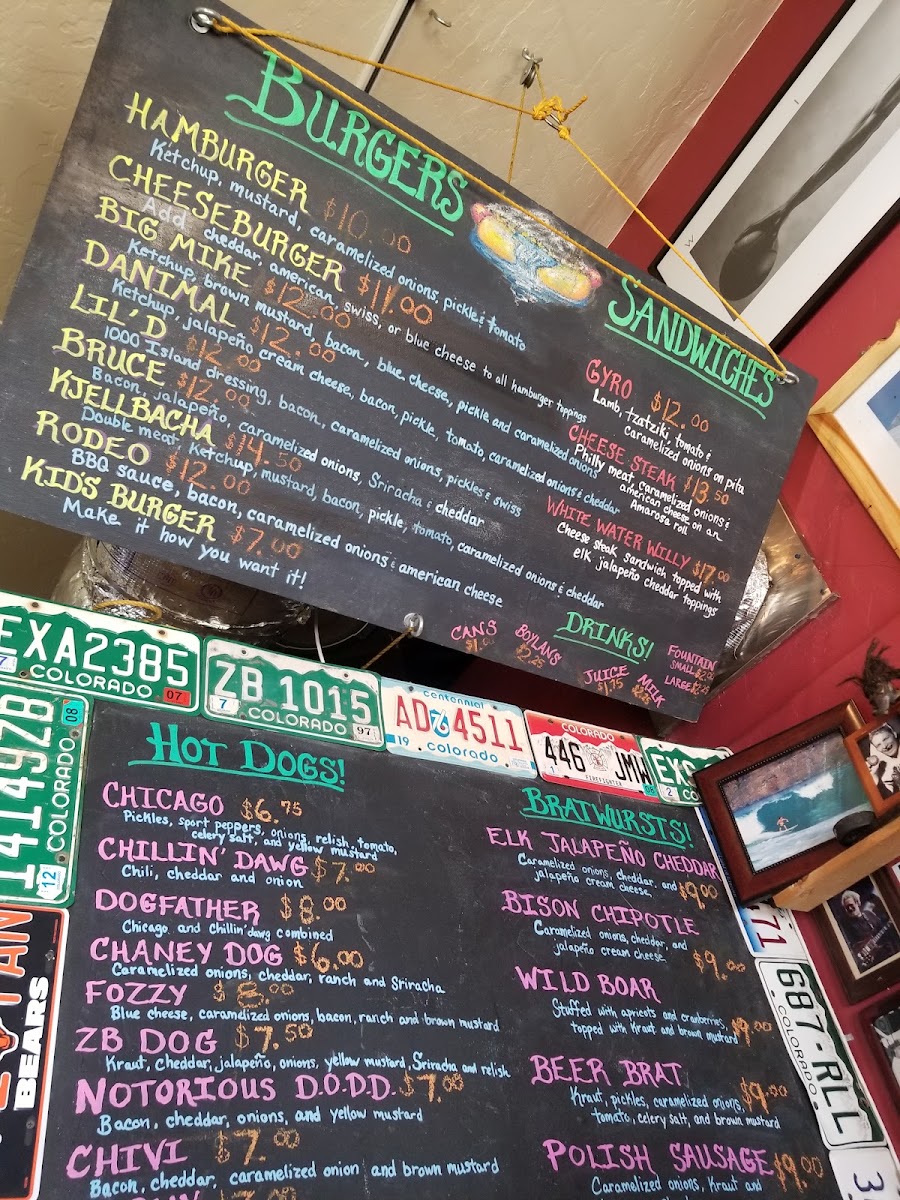 BURGERS
HAMBURGER $10.00
Ketchup, mustard, caramelized onions, pickle & tomato
CHEESEBURGER $11.00
Add cheddar, american, swiss, or blue cheese to all hamburger toppings
BIG MIKE $12.00
Ketchup, brown mustard, bacon, blue cheese, pickle and caramelized onions
DANIMAL $12.00
Ketchup, jalapeño cream cheese, bacon, pickle, tomato, caramelized onions & cheddar
LIL'D $12.00
1000 Island dressing, bacon, caramelized onions, pickles & swiss
BRUCE $12.00
Bacon, jalapeño, caramelized onions, Sriracha & cheddar
KJELLBACHA $14.50
Double meat, Ketchup, mustard, bacon, pickle, tomato, caramelized onions & cheddar
RODEO $12.00
BBQ sauce, bacon, caramelized onions & american cheese
KID'S BURGER $7.00
Make it how you want it!
SANDWICHES
GYRO $12.00
Lamb, tzatziki, tomato &
caramelized onions on pita
CHEESE STEAK $13.50
Philly meat, caramelized onions &
american cheese on an
Amorosa roll
WHITE WATER WILLY $17.00
Cheese steak sandwich topped with
elk jalapeño cheddar toppings
DRINKS!
CANS
BOYLANS
$2.25
JUICE
$1.75
MILK
FOUNTAIN
SMALL
LARGE
EXA2385
COLORADO
7
07
ZB 1015
COLORADO
7
97
centennial
AD 76 4511
19 colorado
COLORADO
446 JMW
FIREFIGHTER
08
EXS
2
CO
1414 9ZB
COLORADO
08
12
BEARS
HOT DOGS!
CHICAGO $6.75
Pickles, sport peppers, onions, relish, tomato,
celery salt, and yellow mustard
CHILLIN' DAWG $7.00
Chili, cheddar and onion
DOGFATHER $8.00
Chicago and Chillin' dawg combined
CHANEY DOG $6.00
Caramelized onions, cheddar, ranch and Sriracha
FOZZY $8.00
Blue cheese, caramelized onions, bacon, ranch and brown mustard
ZB DOG $7.50
Kraut, cheddar, jalapeño, onions, yellow mustard, Sriracha and relish
NOTORIOUS D.O.D.D. $7.00
Bacon, cheddar, onions, and yellow mustard
CHIVI $7.00
Bacon, cheddar, caramelized onion and brown mustard
BRATWURSTS!
ELK JALAPEÑO CHEDDAR
Caramelized onions, cheddar, and
jalapeño cream cheese, $9.00
BISON CHIPOTLE
Caramelized onions, cheddar, and
jalapeño cream cheese $9.00
WILD BOAR
Stuffed with apricots and cranberries,
topped with Kraut and brown mustard $9.00
BEER BRAT
Kraut, pickles, caramelized onions, $9.00
tomato, celery salt, and brown mustard
POLISH SAUSAGE $9.00
Caramelized onions, Kraut and
71
687·RLL
COLORADO
3